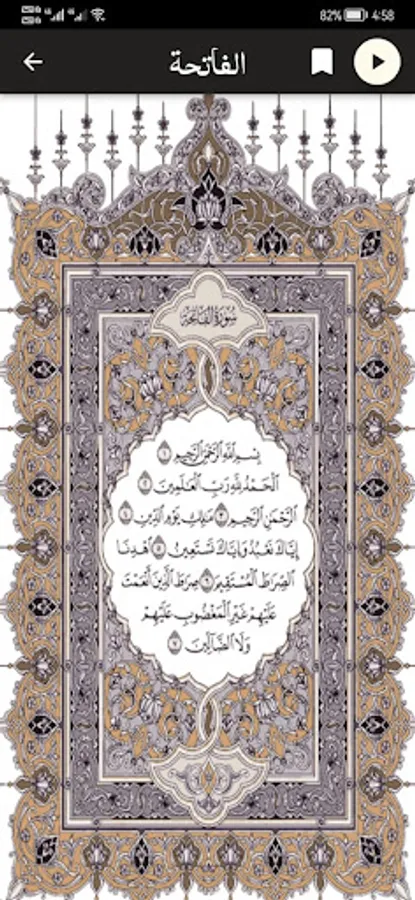 82% 4:58
الفاتحة
سورة الفاتحة
بسم الله الرحمن الرحيم ١
الحمد لله رب العلمين ٢
الرحمن الرحيم ٣ ملك يوم الدين ٤
إياك نعبد وإياك نستعين ٥ اهدنا
الصرط المستقيم ٦ صرط الذين أنعمت
عليهم غير المغضوب عليهم
ولا الضالين ٧